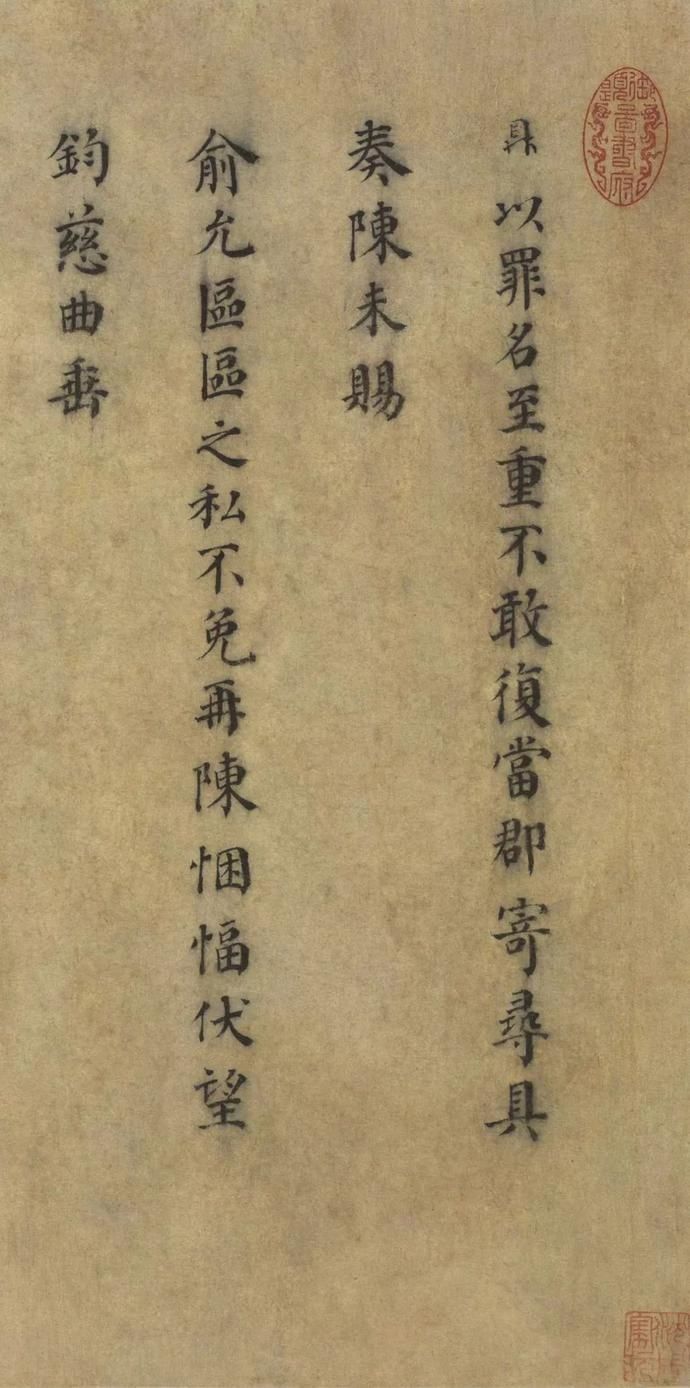 鼎以罪名至重不敢復當郡寄尋具
奏陳未賜
俞允區區之私不免再陳悃愊伏望
鈞慈曲垂